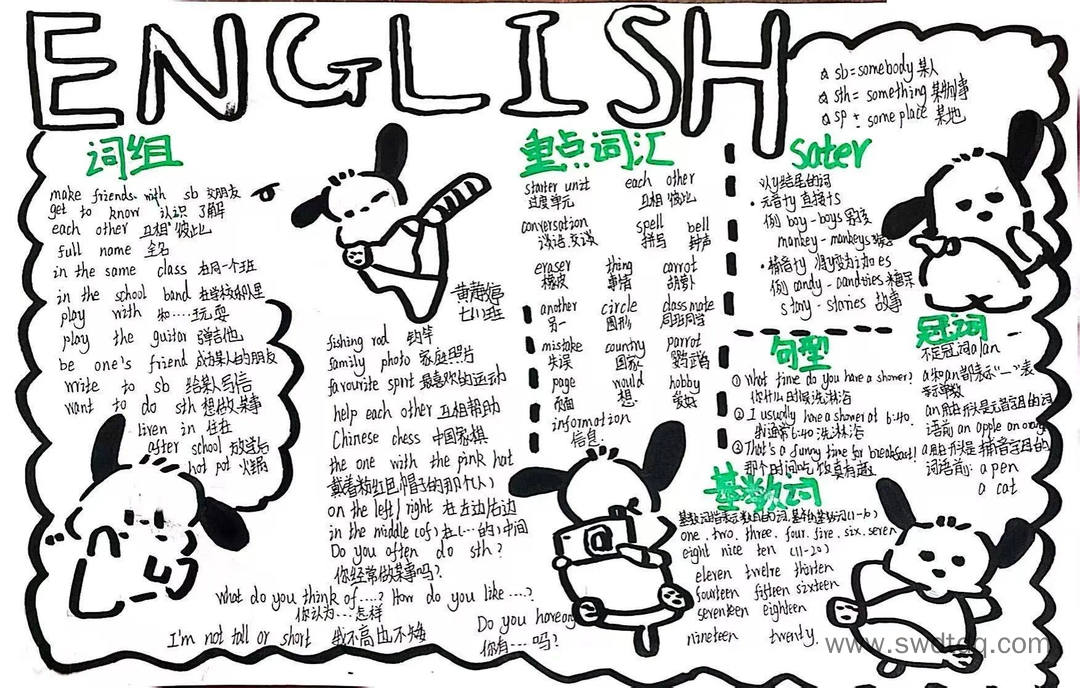 ENGLISH
a sb=somebody 某人
a sth= something 某物事
a sp= some place 某地
词组
make friends with sb 交朋友
get to know 认识 了解
each other 互相 彼此
full name 全名
in the same class 在同一个班
in the school band 在学校乐队里
play with 和……玩耍
play the guitar 弹吉他
be one's friend 成为某人的朋友
write to sb 给某人写信
want to do sth 想做某事
liven in 住在
after school 放学后
hot pot 火锅
七(1)班
fishing rod 钓竿
family photo 家庭照片
favourite sprit 最喜欢的运动
help each other 互相帮助
Chinese chess 中国象棋
the one with the pink hat
戴着粉红色帽子的那个(人)
on the left/right 在左边/右边
in the middle (of) 在(…的)中间
Do you often do sth?
你经常做某事吗?
What do you think of....? How do you like ....?
你认为……怎样
I'm not tall or short 我不高也不矮
Do you have any
你有……吗?
重点词汇
starter unit each other
过度单元 互相 彼此
conversation spell bell
谈话.交谈 拼写 钟声
eraser thing carrot
橡皮 事情 胡萝卜
another circle classmate
另一 圆形 同班同学
mistake country parrot
失误 国家 鹦鹉
page would hobby
页面 想 爱好
information
信息
sater
以y结尾的词
·元音+y 直接+s
例 boy-boys 男孩
mankey-mankeys 猴子
·辅音+y, 将y变为i加es
例 candy-candries 糖果
story-stories 故事
句型
①What time do you have a shower?
你什么时候洗淋浴
②I usually have a shower at 6:40.
我通常6:40洗淋浴
③That's a funny time for breakfast!
那个时间吃饭真有趣
冠词
不定冠词a/an
a和an都表示“一”表
示单数
an用于开头是元音字母的词
语前 an apple an orange
a用于开头是辅音字母的
词语前: a pen
a cat
基数词
one, two, three, four, five, six, seven
eight nice ten (11-20)
eleven twelve thirten
fourteen fifteen sixteen
seventeen eighteen
nineteen twenty.
www.swdtdq.com